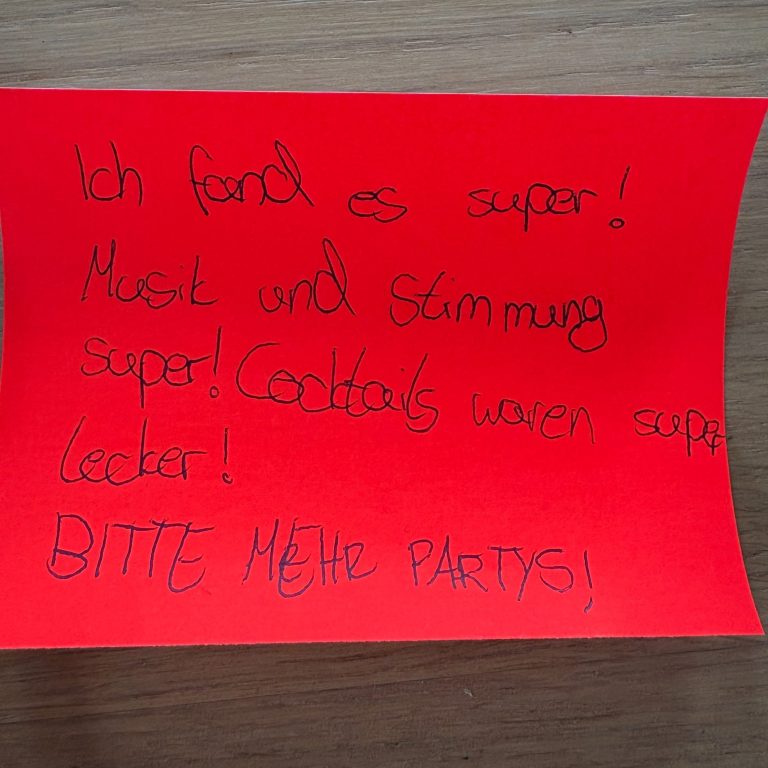 Ich fand es super!
Musik und Stimmung
super! Cocktails waren super
lecker!
BITTE MEHR PARTYS!